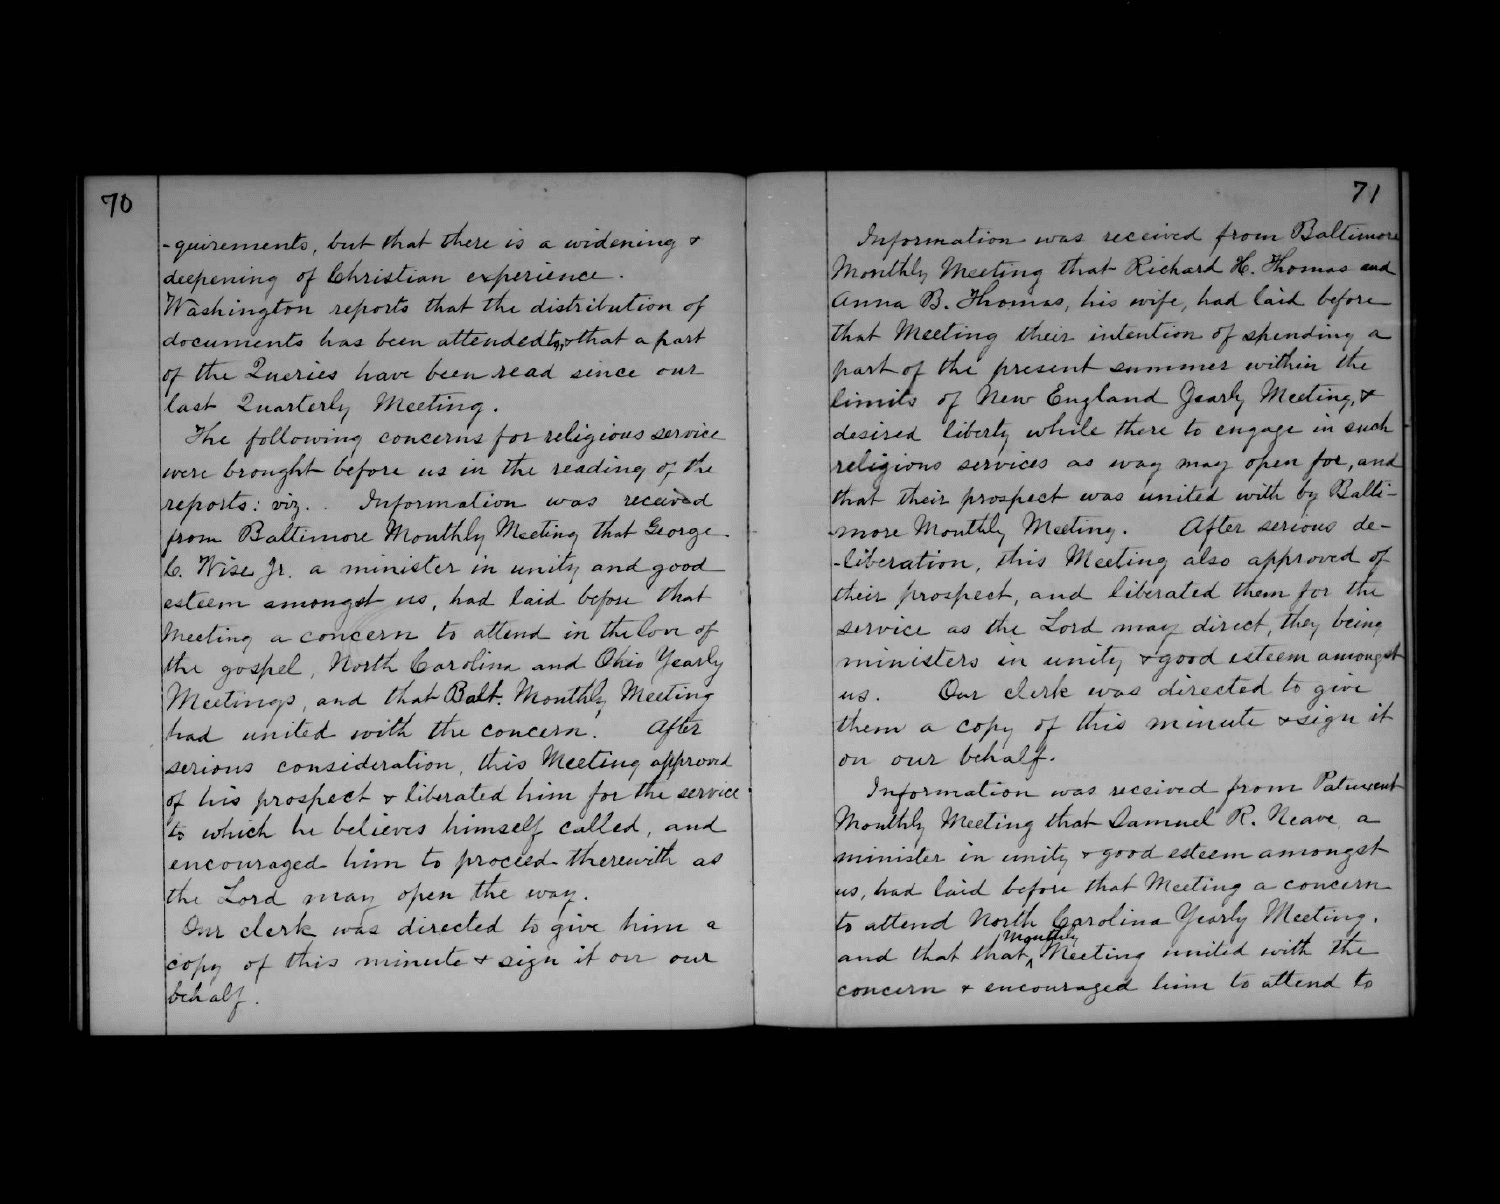 70
-quirements, but that there is a widening &
deepening of Christian experience.
Washington reports that the distribution of
documents has been attended to, & that a part
of the Queries have been read since our
last Quarterly Meeting.
The following concerns for religious service
were brought before us in the reading of the
reports: viz. . Information was received
from Baltimore Monthly Meeting that George
C. Wise Jr. a minister in unity and good
esteem amongst us, had laid before that
Meeting a concern to attend in the love of
the gospel, North Carolina and Ohio Yearly
Meetings, and that Balt. Monthly Meeting
had united with the concern. After
serious consideration, this Meeting approved
of his prospect & liberated him for the service
to which he believes himself called, and
encouraged him to proceed therewith as
the Lord may open the way.
Our clerk was directed to give him a
copy of this minute & sign it on our
behalf.
71
Information was received from Baltimore
Monthly Meeting that Richard H. Thomas and
Anna B. Thomas, his wife, had laid before
that Meeting their intention of spending a
part of the present summer within the
limits of New England Yearly Meeting, &
desired liberty while there to engage in such
religious services as way may open for, and
that their prospect was united with by Balti-
-more Monthly Meeting. After serious de-
-liberation, this Meeting also approved of
their prospect, and liberated them for the
service as the Lord may direct, they being
ministers in unity & good esteem amongst
us. Our clerk was directed to give
them a copy of this minute & sign it
on our behalf.
Information was received from Patuxent
Monthly Meeting that Samuel R. Neave, a
minister in unity & good esteem amongst
us, had laid before that Meeting a concern
to attend North Carolina Yearly Meeting.
and that that ^ Monthly Meeting united with the
concern & encouraged him to attend to